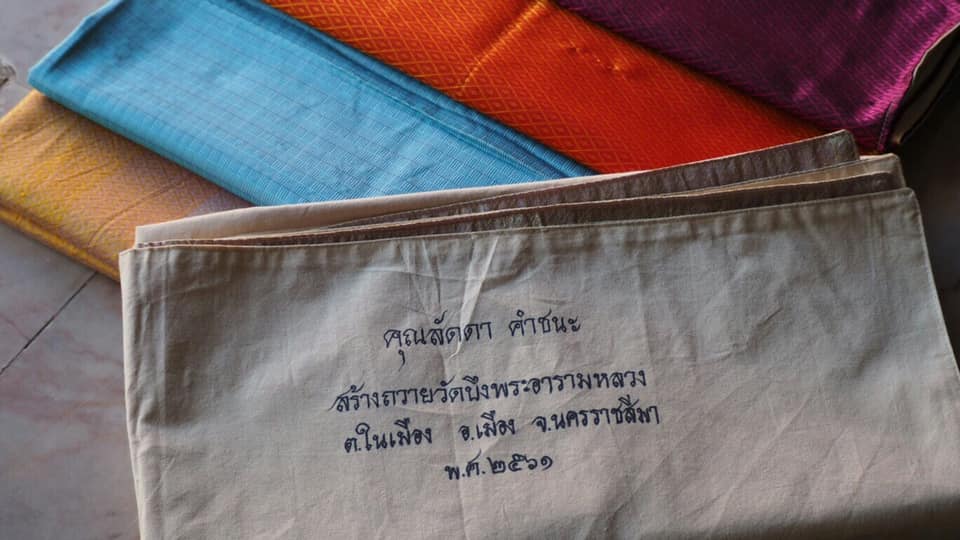 คุณลัดดา คำชนะ
สร้างถวายวัดบึงพระอารามหลวง
ต.ในเมือง อ.เมือง จ.นครราชสีมา
พ.ศ.๒๕๖๑